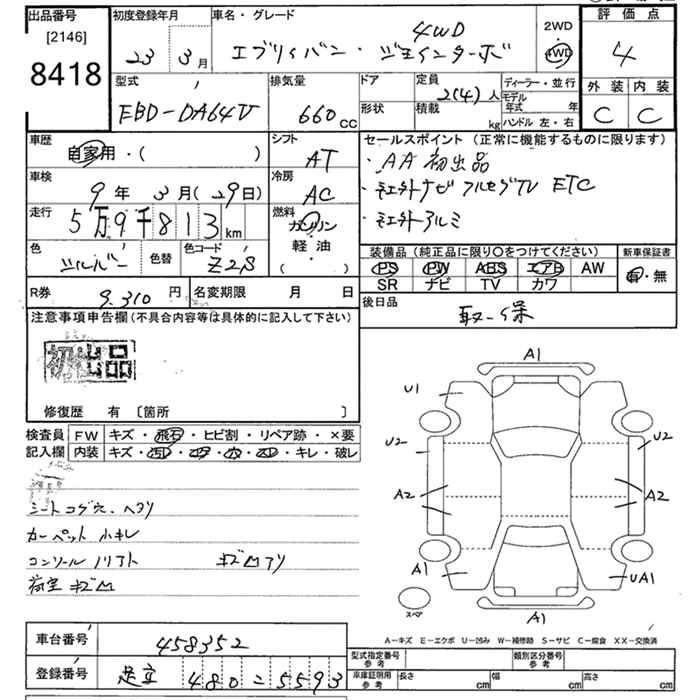 出品番号
[2146]
8418
初度登録年月
23 3月
車名・グレード
4WD
エブリィバン・ジョインターボ
2WD
4WD
評価点
4
外装 内装
C C
型式
EBD-DA64V
排気量
660cc
ドア
形状
定員
2(4)人
積載
kg
ディーラー・並行
モデル
年式 年
ハンドル 左・右
車歴
自家用・( )
シフト
AT
車検
9年 3月(29日)
冷房
AC
走行
5万9千813km
燃料
ガソリン
軽油
( )
色
シルバー
色替
色コード
Z2S
セールスポイント(正常に機能するものに限ります)
・AA初出品
・社外ナビ フルセグTV ETC
・社外アルミ
装備品(純正品に限り○をつけてください)
新車保証書
PS PW ABS エアB AW
有・無
SR ナビ TV カワ
R券
9,310円
名変期限 月 日
後日品
取・保
注意事項申告欄(不具合内容等は具体的に記入して下さい)
初出品
修復歴 有 [箇所 ]
検査員
記入欄
FW キズ・飛石・ヒビ割・リペア跡・×要
内装 キズ・汚れ・コゲ・穴・スレ・キレ・破レ
シートコゲ穴、ヘタリ
カーペット小キレ
コンソールノリアト キズ凹アリ
荷室キズ凹
A1
U1
U2
U2
A2
A2
A1
UA1
A1
スペア
A-キズ E-エクボ U-凹み W-補修跡 S-サビ C-腐食 XX-交換済
車台番号
458352
登録番号
足立 480-5593
型式指定番号
参考
類別区分番号
参考
車庫証明用
参考
長さ cm
幅 cm
高さ cm